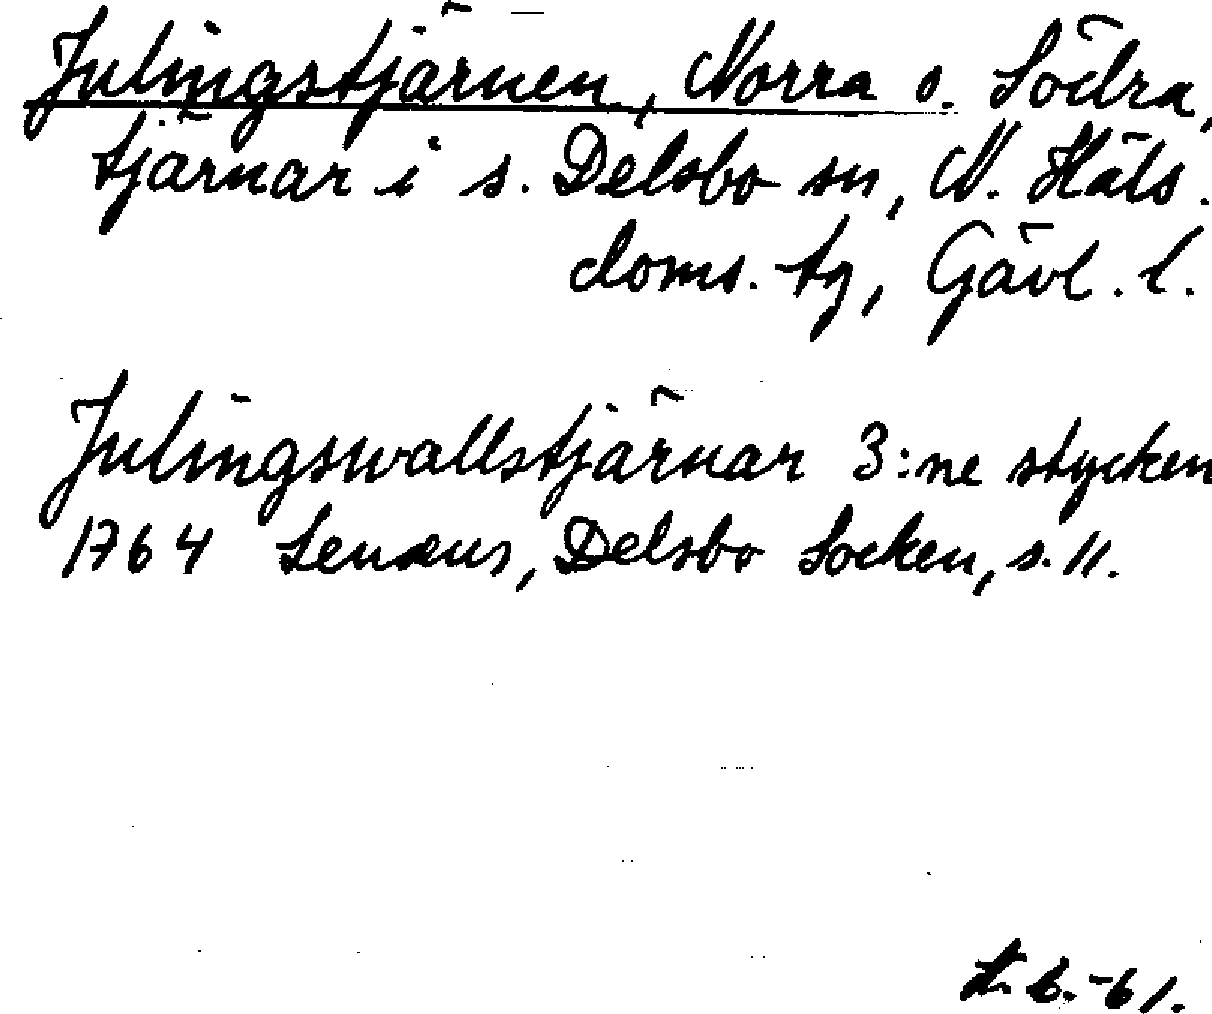 Julingstjärnen, Norra o. Södra,
tjärnar i s. Delsbo sn, N. Häls.
doms. tg, Gävl. l.
Julingswallstjärnar 3:ne stycken
1764 Lenæus, Delsbo Socken, s. 11.
L. B. -61.